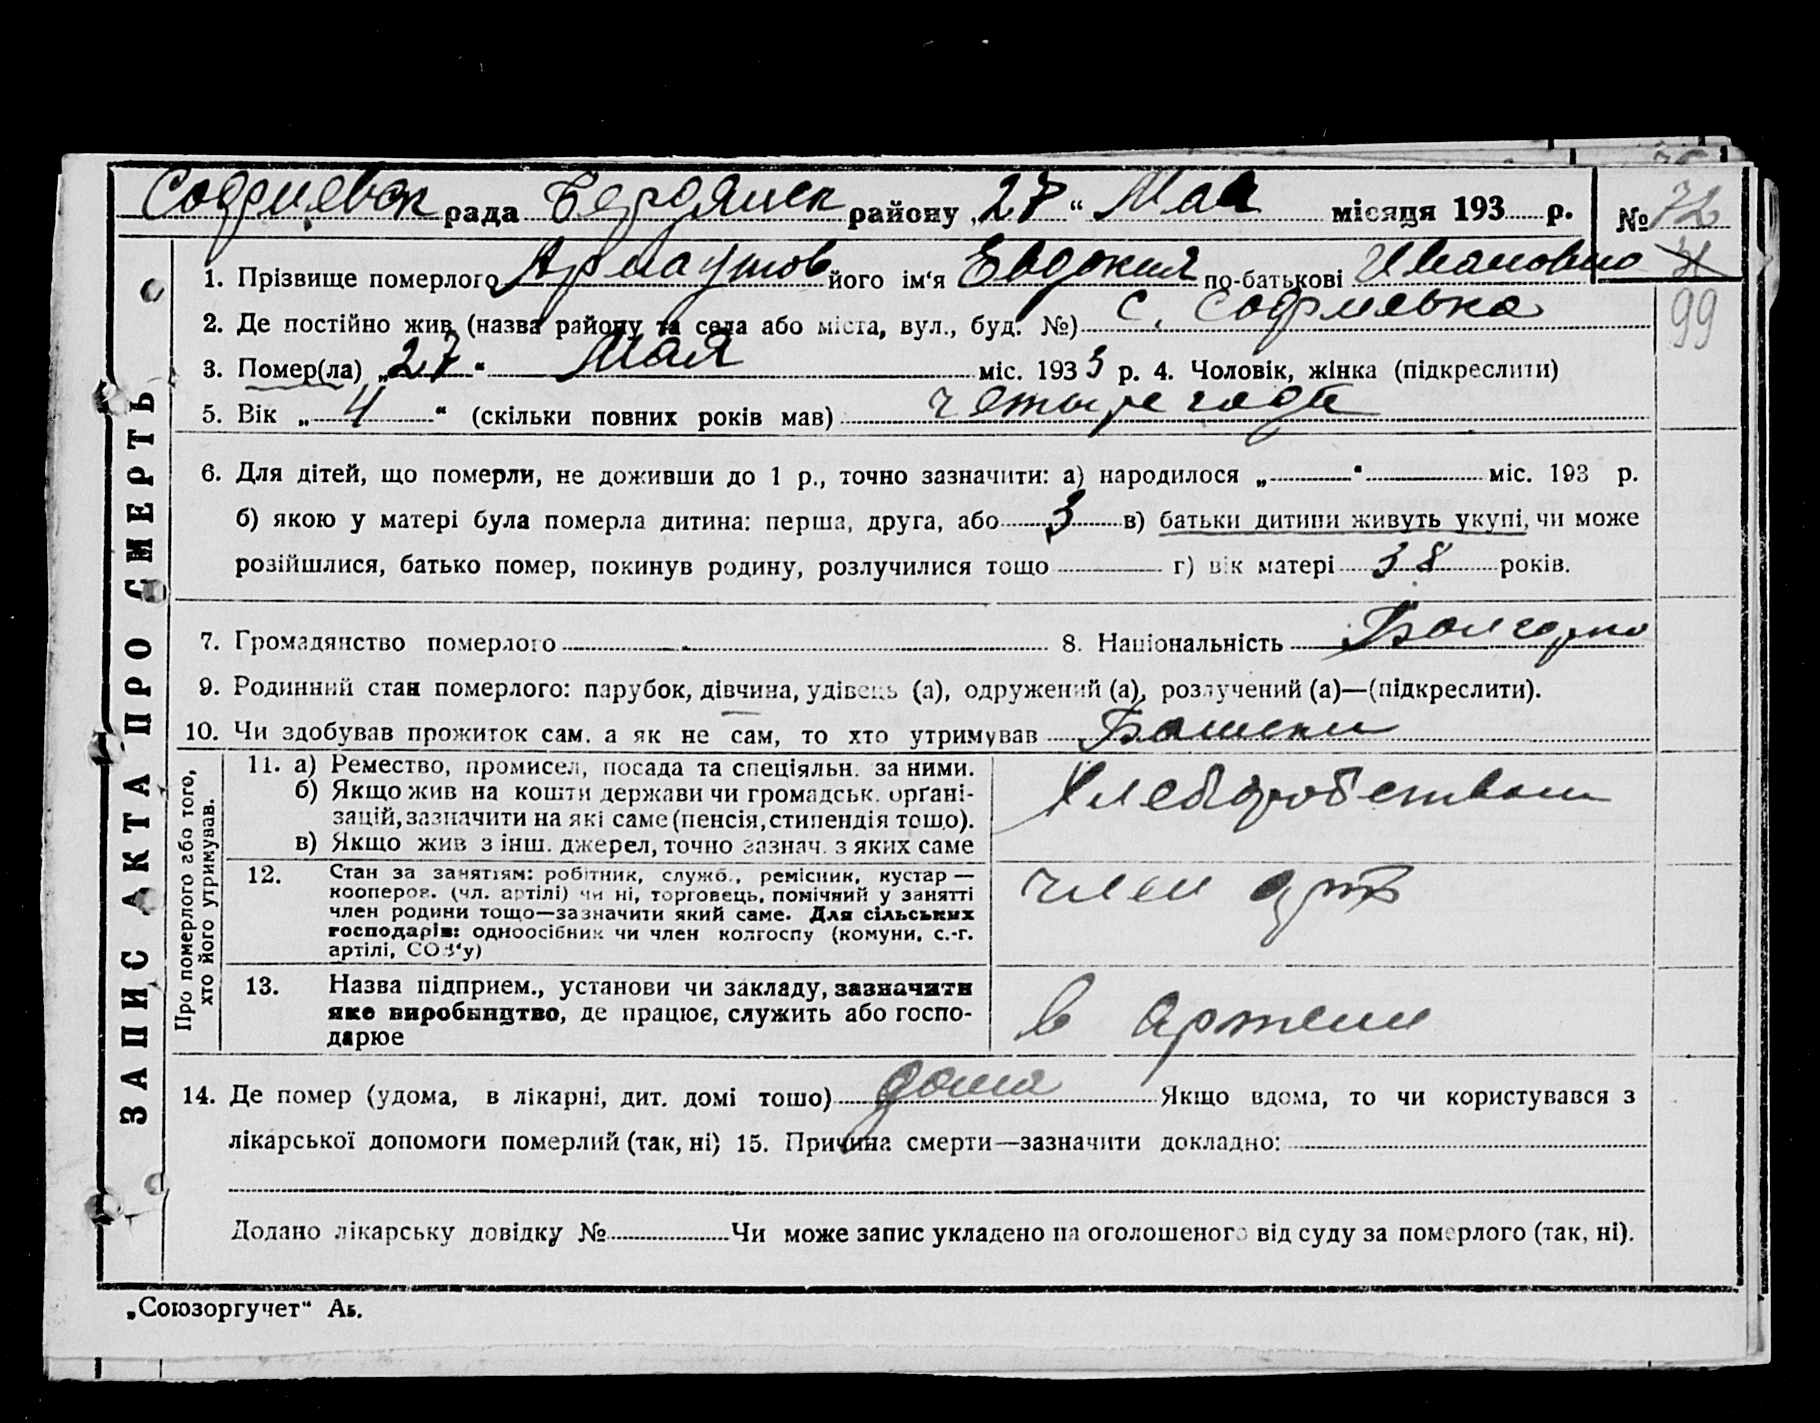 Софиевск рада Бердянск району „27“ Мая місяця 193 р. № 72
31
99
ЗАПИС АКТА ПРО СМЕРТЬ
1. Прізвище померлого Арнаутов його ім‘я Евдокия по-батькові Ивановно
2. Де постійно жив (назва району та села або міста, вул., буд. №) с. Софиевка
3. Помер(ла) „27“ Мая міс. 1933 р. 4. Чоловік, жінка (підкреслити)
5. Вік „4“ (скільки повних років мав) четыре года
6. Для дітей, що померли, не доживши до 1 р., точно зазначити: а) народилося „ “ міс. 193 р.
б) якою у матері була померла дитина: перша, друга, або 3 в) батьки дитини живуть укупі, чи може
розійшлися, батько помер, покинув родину, розлучилися тощо г) вік матері 38 років.
7. Громадянство померлого 8. Національність Болгарка
9. Родинний стан померлого: парубок, дівчина, удівець (а), одружений (а), розлучений (а)—(підкреслити).
10. Чи здобував прожиток сам. а як не сам, то хто утримував
Про померлого або того, хто його утримував.
11. а) Ремество, промисел, посада та спеціяльн. за ними.
б) Якщо жив на кошти держави чи громадськ. орґані-
зацій, зазначити на які саме (пенсія, стипендія тощо).
в) Якщо жив з інш. джерел, точно зазнач. з яких саме
Хлеборобством
12. Стан за занятіям: робітник, служб., ремісник, кустар—
кооперов. (чл. артілі) чи ні, торговець, помічний у занятті
член родини тощо—зазначити який саме. Для сільських
господарів: одноосібник чи член колгоспу (комуни, с.-г.
артілі, СОЗ‘у)
член арт
13. Назва підприєм., установи чи закладу, зазначити
яке виробництво, де працює, служить або госпо-
дарює
в артели
14. Де помер (удома, в лікарні, дит. домі тошо) дома Якщо вдома, то чи користувався з
лікарської допомоги померлий (так, ні) 15. Причина смерти—зазначити докладно:
Додано лікарську довідку № Чи може запис укладено на оголошеного від суду за померлого (так, ні).
„Союзоргучет“ Аь.